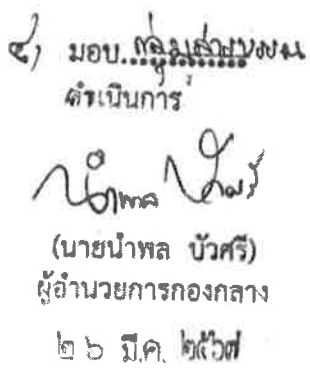 ๔) มอบ..กลุ่มสารบรรณ
ดำเนินการ
นำพล บัวศรี
(นายนำพล บัวศรี)
ผู้อำนวยการกองกลาง
๒๖ มี.ค. ๒๕๖๗